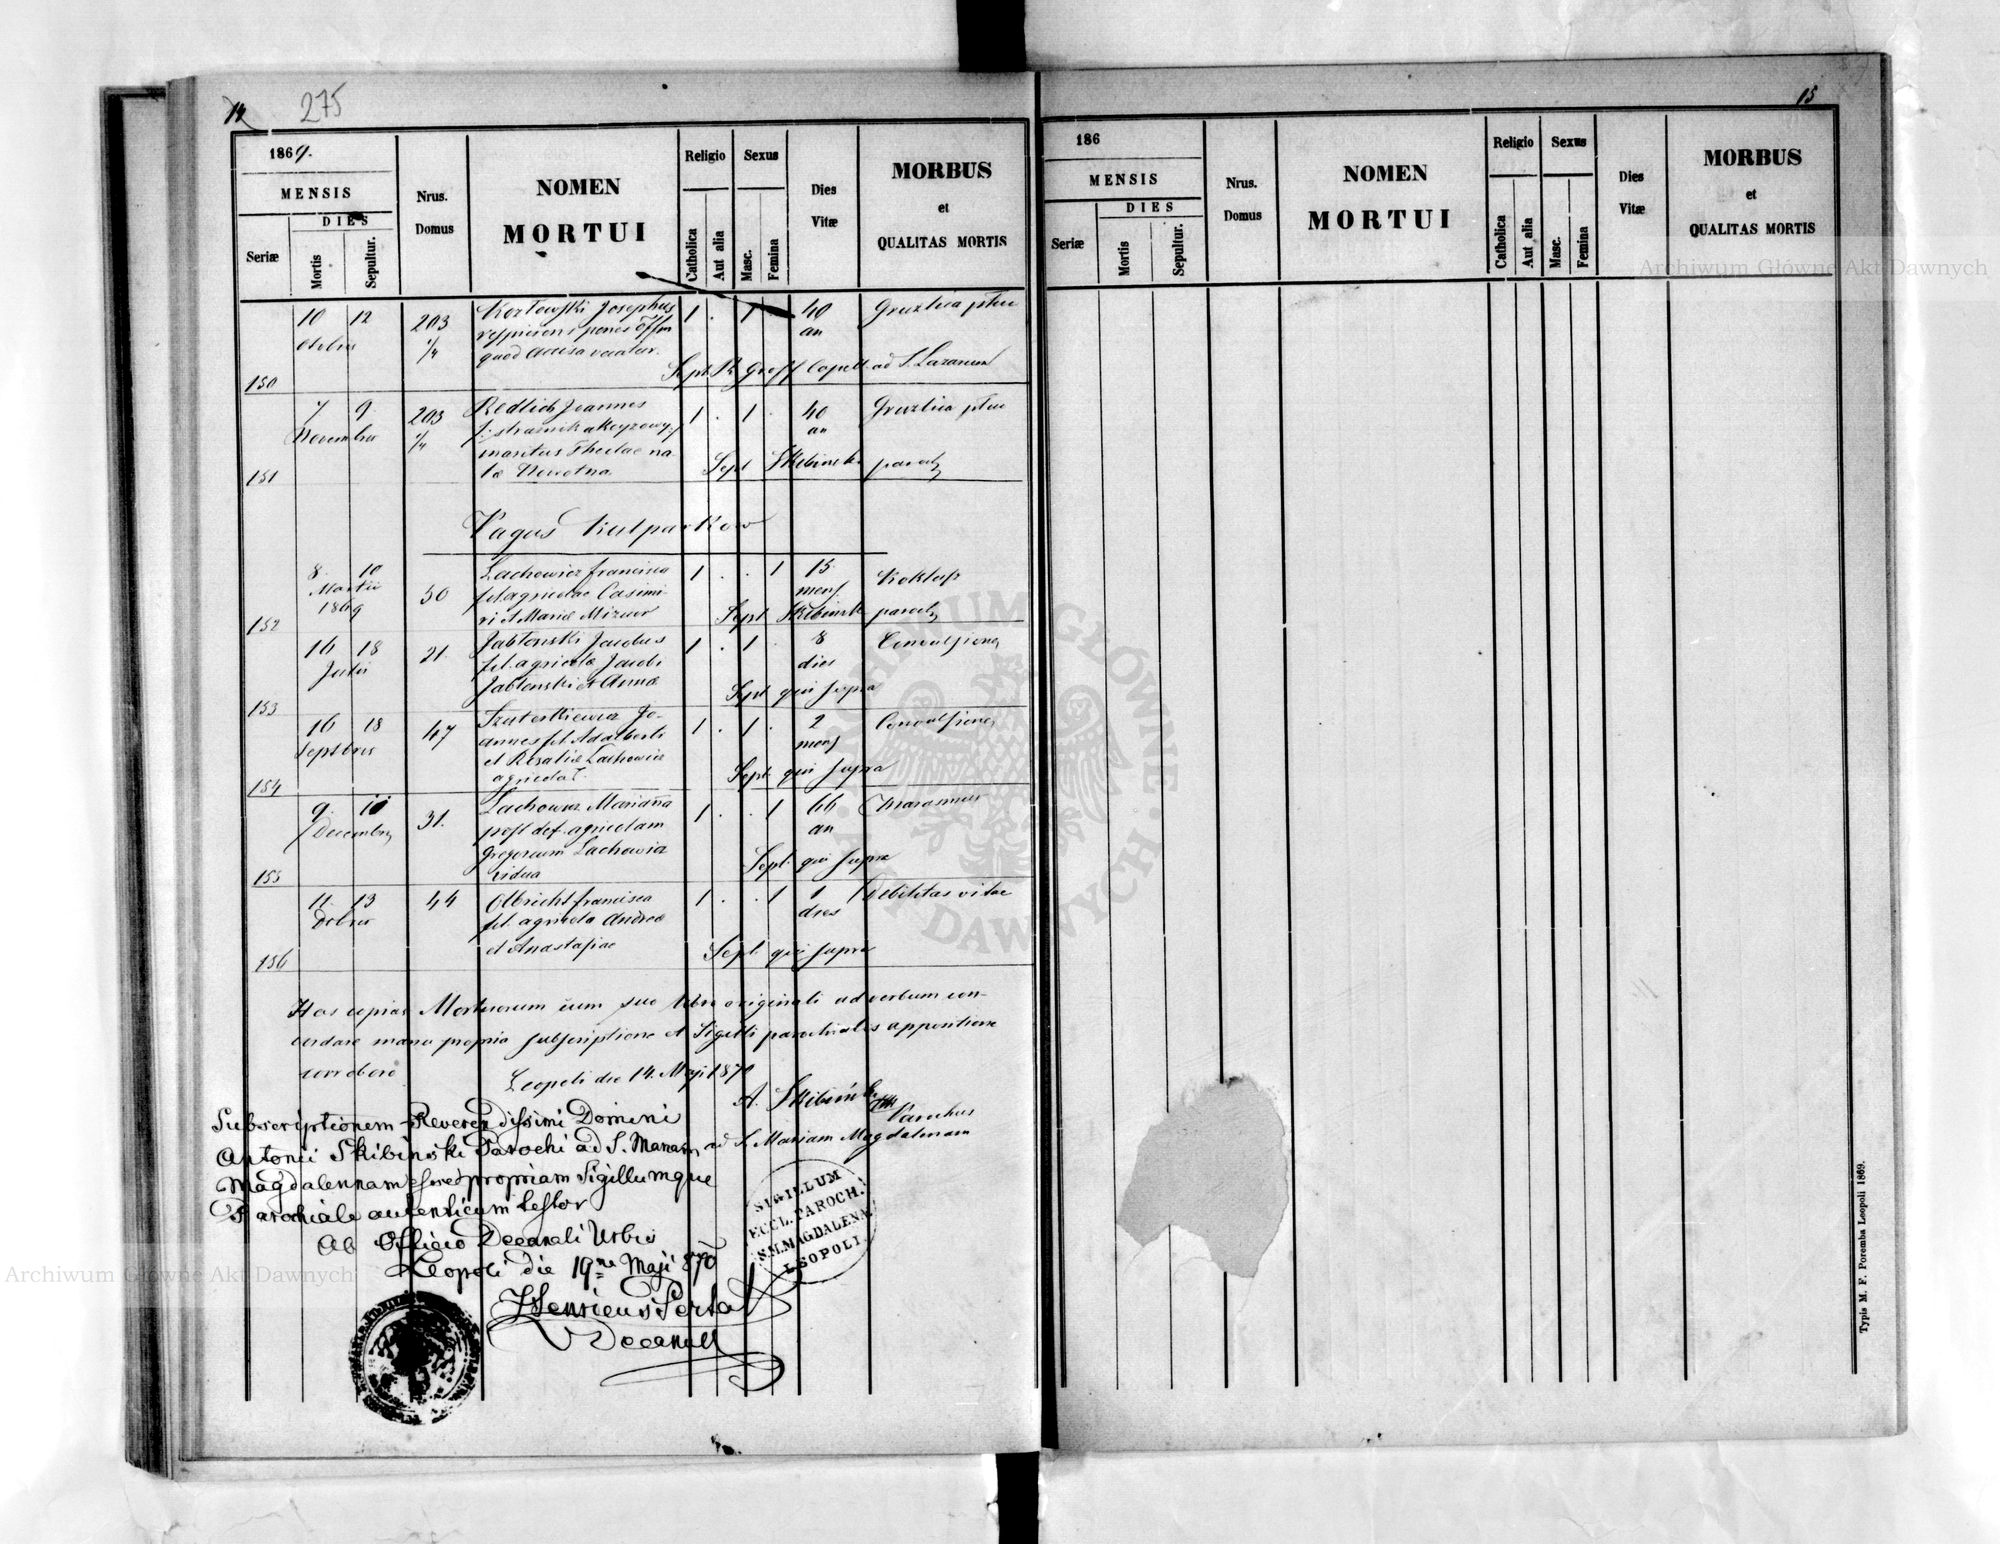 14
275
1869.
MENSIS
DIES
Seriæ
Mortis
Sepultur.
Nrus.
Domus
NOMEN
MORTUI
Religio
Catholica
Aut alia
Sexus
Masc.
Femina
Dies
Vitæ
MORBUS
et
QUALITAS MORTIS
10 12 203 Kozłowski Josephus 1 . 1 . 40 Gruzlica płuc
Octobris 1/4 an
quod Accisa vocatur.
150 Sept. Capell ad S. Lazarum
7 9 203 Redlich Joannes 1 . 1 . 40 Gruzlica płuc
Novembr 1/4 strażnik akcyzowy an
maritus Theclae na-
tæ Nowotna Sept Skibinski paroch
151
Pagus Kulparkow
8 10 Lachowicz Francisca 1 . . 1 15 Koklusz
Martii 50 fil. agricolae Casimi- mens
1869 ri et Mariæ Mizuor Sept Skibinski paroch
152
16 18 21. Jabłonski Jacobus 1 . 1 . 8 Convulsiones
Julii fil. agricolæ Jacobi dies
Jabłonski et Annæ Sept qui supra
153
16 18 47 Jo- 1 . 1 . 2 Convulsiones
Septbris annes fil. Adalberti mens
et Rosaliæ Lachowicz Sept. qui supra
154 agricolar.
9 11 31. Lachowicz Marianna 1 . . 1 66 Marasmus
Decembris post def. agricolam an
Gregorium Lachowicz Sept. qui supra
155 vidua
11. 13 44 Olbricht Francisca 1 . . 1 1 Debilitas vitae
Dcbris fil. agricolæ Andreæ dies
et Anastasiae Sept. qui supra
156
Has copias Mortuorum cum suo libro originali ad verbum con-
cordare manu propria subscriptione et Sigilli parochialis appositione
corroboro
Leopoli die 14. Maji 1870
A. Skibiński
Parochus
ad S. Mariam Magdalenam
Subscriptionem Reverendissimi Domini
Antonii Skibinski Parochi ad S. Mariam
Magdalennam esse propriam Sigillumque
Parochiale autenticum testor
Ab Officio Decanali Urbis
Leopoli die 19na Maji 870
SIGILLUM
ECCL. PAROCH.
S.M. MAGDALENA
LEOPOLI
15
186
MENSIS
DIES
Seriæ
Mortis
Sepultur.
Nrus.
Domus
NOMEN
MORTUI
Religio
Catholica
Aut alia
Sexus
Masc.
Femina
Dies
Vitæ
MORBUS
et
QUALITAS MORTIS
Typis M. F. Poremba Leopoli 1869.
Archiwum Główne Akt Dawnych
Archiwum Główne Akt Dawnych
ARCHIWUM GŁÓWNE · AKT DAWNYCH ·